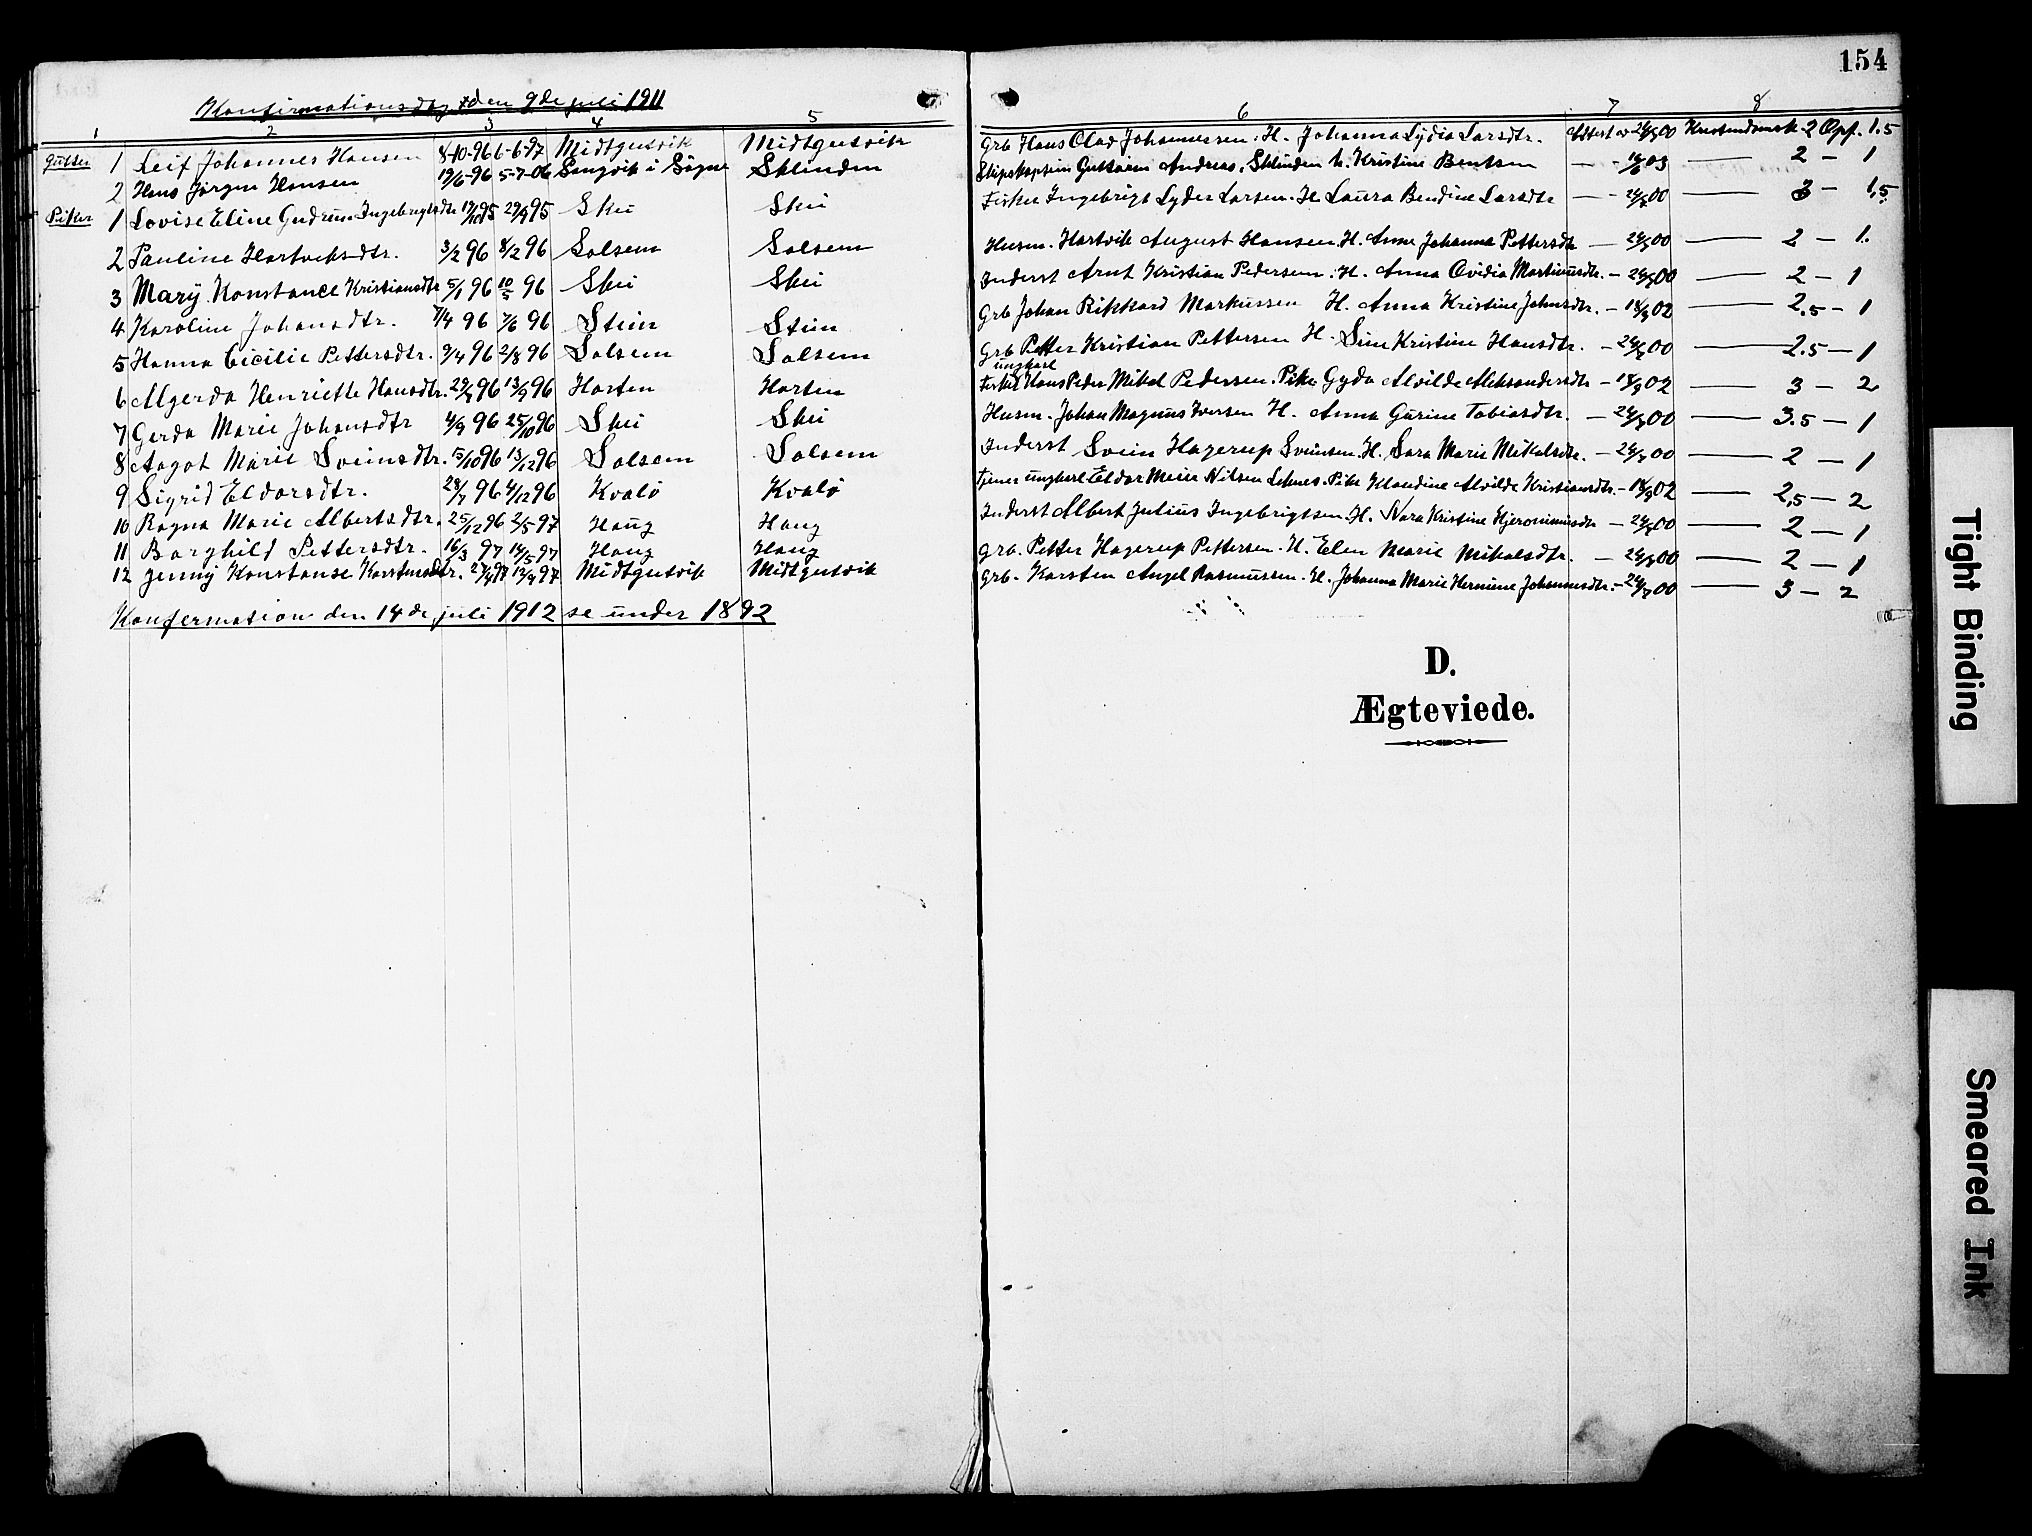 154
Konfirmationsdag den 9de juli 1911
1 2 3 4 5 6 7 8
Gutter 1 Leif Johannes Hansen 8-10-96 6-6-97 Midtgutvik Midtgutvik Grb Hans Olad Johannessen. H. Johanna Lydia Larsdtr. 00 Kristendomsk. 2 Opf. 1.5
2 Hans Jørgen Hansen 5-7-06 i Søgne Sklinden Andreas, Sklinden h. Kristine Bentsen — 03 — 2 — 1
Piker 1 Lovise Eline Gudrun Ingebrigtsdtr 95 95 Skei Skei Fisker Ingebrigt Lyder Larsen. H Laura Bendine Larsdtr — 00 — 3 — 1.5
2 Pauline Hartviksdtr. 3/2 96 8/12 96 Solsem Solsem Husm. Hartvik August Hansen. H. Anne Johanna Pettersdtr — 00 — 2 — 1.
3 Mary Konstance Kristiansdtr 5/1 96 10/5 96 Skei Skei Inderst Arnt Kristian Pedersen. H. Anna Ovidia Martinusdtr. — 00 — 2 — 1
4 Karoline Johansdtr. 96 7/6 96 Stein Stein Grb Johan Rikkard Markussen H. Anna Kristine Johnsdtr. — 02 — 2.5 — 1
5 Hanna Cicilie Pettersdtr. 9/4 96 2/8 96 Solsem Solsem Grb Petter Kristian Pettersen H. Sine Kristine Hansdtr. — 00 — 2.5 — 1
6 Algerda Henriette Hansdtr. 96 13/9 96 Horten Horten ungkarl Fisker Hans Peder Mikal Pedersen. Pike Gyda Alvilde Aleksandersdtr — 02 — 3 — 2
7 Gerda Marie Johansdtr 4/9 96 25/10 96 Skei Skei Husm. Johan Magnus Iversen H. Anna Gurine Tobiasdtr. — 00 — 3.5 — 1
8 Aagot Marie Sveinsdtr. 15/10 96 13/12 96 Solsem Solsem Inderst Svein Hagerup Sveinsen. H. Sara Marie Mikalsdtr. — 00 — 2 — 1
9 Sigrid Eldorsdtr. 28/7 96 4/12 96 Kvalø Kvalø Tjener ungkarl Eldor Meier Nilsen Leknes. Pike Klaudine Alvilde Kristiansdtr. — 02 — 2,5 — 2
10 Ragna Marie Albertsdtr. 25/12 96 2/5 97 Haug Haug Inderst Albert Julius Ingebrigtsen. H. Nora Kristine Hjeronimusdtr — 00 — 2 — 1
11 Borghild Pettersdtr. 16/3 97 14/5 97 Haug Haug Grb. Petter Hagerup Pettersen. H. Elen Marie Mikalsdtr. — 00 — 2 — 1
12 Jenny Konstanse Karstensdtr. 97 97 Midtgutvik Midtgutvik Grb. Karsten Angel Rasmussen. H. Johanna Marie Hermine Johannesdtr. — 00 — 3 — 2
Konfermation den 14de juli 1912 se under 1892
D.
Ægteviede.
Tight Binding
Smeared Ink